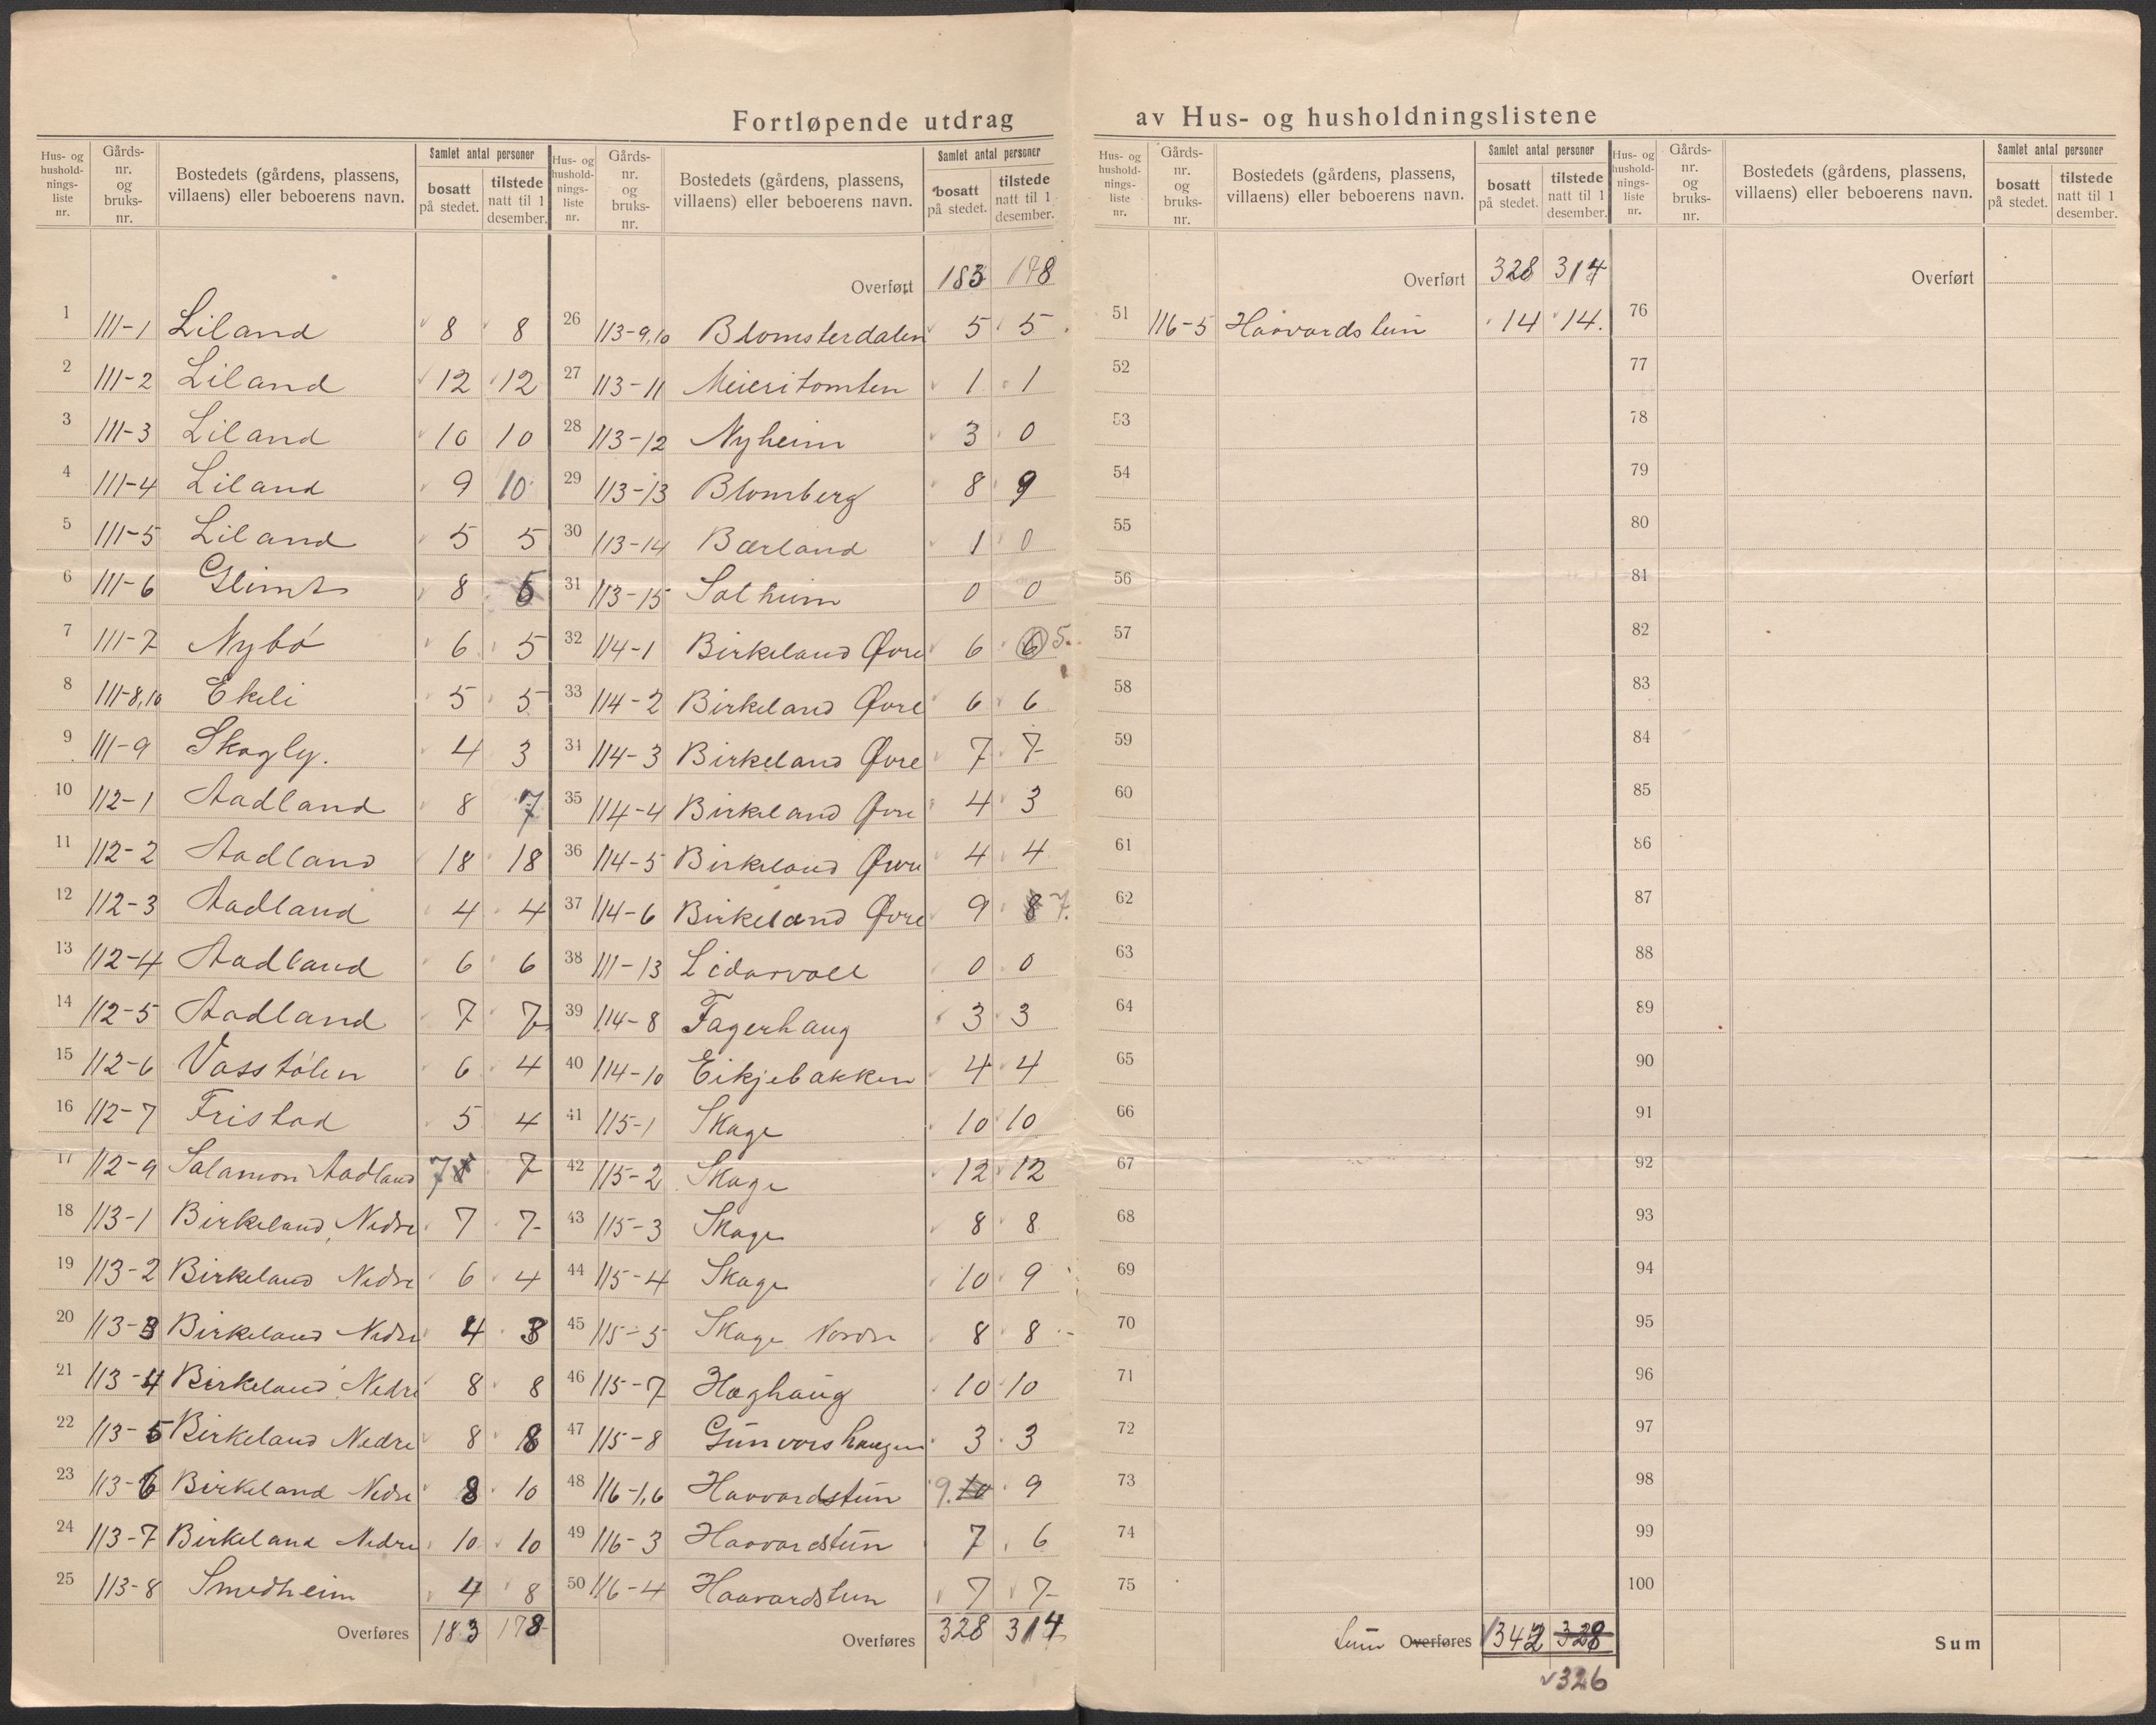 Fortløpende utdrag av Hus- og husholdningslistene
Hus- og husholdnings-liste nr. | Gårds-nr. og bruks-nr. | Bostedets (gårdens, plassens, villaens) eller beboerens navn. | Samlet antal personer | bosatt på stedet. | tilstede natt til 1 desember.
1 111-1 Liland 8 8
2 111-2 Liland 12 12
3 111-3 Liland 10 10
4 111-4 Liland 9 10
5 111-5 Liland 5 5
6 111-6 Glimt 8
7 111-7 Nybö 6 5
8 111-8,10 Ekeli 5 5
9 111-9 Skogly. 4 3
10 112-1 Aadland 8 7
11 112-2 Aadland 18 18
12 112-3 Aadland 4 4
13 112-4 Aadland 6 6
14 112-5 Aadland 7 7
15 112-6 Vasstölen 6 4
16 112-7 Fristad 5 4
17 112-9 Salamon Aadland 7 7
18 113-1 Birkeland Nedre 7 7
19 113-2 Birkeland Nedre 6 4
20 113-3 Birkeland Nedre 4 3
21 113-4 Birkeland Nedre 8 8
22 113-5 Birkeland Nedre 8 8
23 113-6 Birkeland Nedre 8 10
24 113-7 Birkeland Nedre 10 10
25 113-8 Smedheim 4 8
Overføres 183 178
Hus- og husholdnings-liste nr. | Gårds-nr. og bruks-nr. | Bostedets (gårdens, plassens, villaens) eller beboerens navn. | Samlet antal personer | bosatt på stedet. | tilstede natt til 1 desember.
Overført 183 178
26 113-9,10 Blomsterdalen 5 5
27 113-11 Meieritomten 1 1
28 113-12 Nyheim 3 0
29 113-13 Blomberg 8 9
30 113-14 Bærland 1 0
31 113-15 Solheim 0 0
32 114-1 Birkeland Øvre 6 6 5
33 114-2 Birkeland Øvre 6 6
34 114-3 Birkeland Øvre 7 7
35 114-4 Birkeland Øvre 4 3
36 114-5 Birkeland Øvre 4 4
37 114-6 Birkeland Øvre 9 8 7
38 111-13 Lidarvoll 0 0
39 114-8 Fagerhaug 3 3
40 114-10 Eikjebakken 4 4
41 115-1 Skage 10 10
42 115-2 Skage 12 12
43 115-3 Skage 8 8
44 115-4 Skage 10 9
45 115-5 Skage Nordre 8 8
46 115-7 Haghaug 10 10
47 115-8 Gunvorshaugen 3 3
48 116-1,6 Haavardstun 9. 10 9
49 116-3 Haavardstun 7 6
50 116-4 Haavardstun 7 7
Overføres 328 314
Hus- og husholdnings-liste nr. | Gårds-nr. og bruks-nr. | Bostedets (gårdens, plassens, villaens) eller beboerens navn. | Samlet antal personer | bosatt på stedet. | tilstede natt til 1 desember.
Overført 328 314
51 116-5 Haavardstun 14 14.
52
53
54
55
56
57
58
59
60
61
62
63
64
65
66
67
68
69
70
71
72
73
74
75
Sum Overføres 342 328
326
Hus- og husholdnings-liste nr. | Gårds-nr. og bruks-nr. | Bostedets (gårdens, plassens, villaens) eller beboerens navn. | Samlet antal personer | bosatt på stedet. | tilstede natt til 1 desember.
Overført
76
77
78
79
80
81
82
83
84
85
86
87
88
89
90
91
92
93
94
95
96
97
98
99
100
Sum